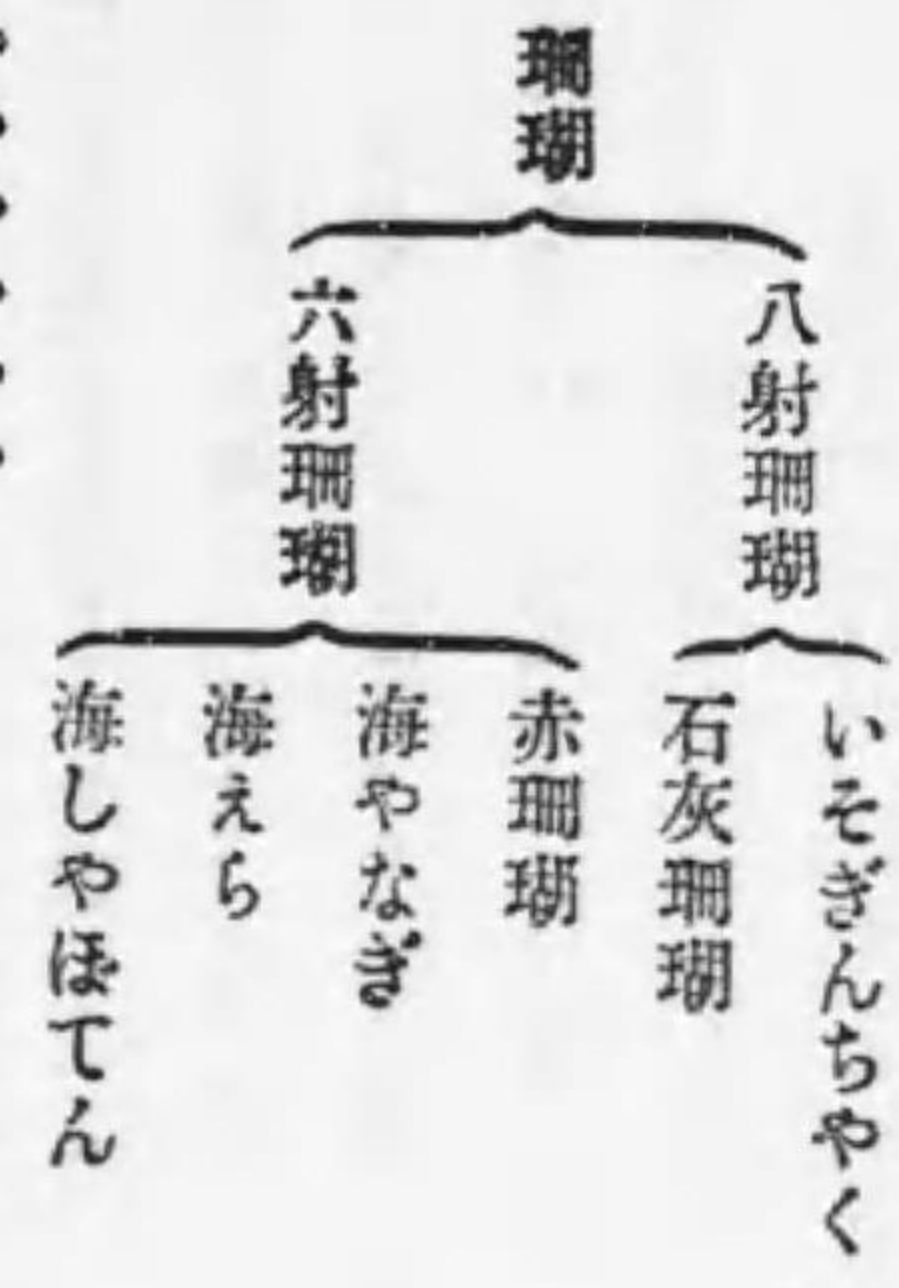 珊瑚
八射珊瑚
いそぎんちやく
石灰珊瑚
六射珊瑚
赤珊瑚
海やなぎ
海えら
海しやぼてん